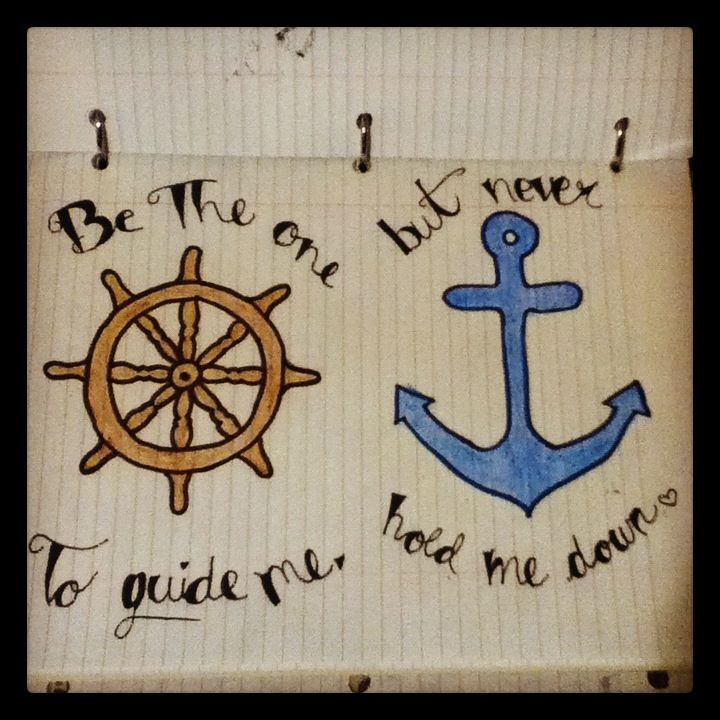 Be The one
To guide me.
but never
hold me down.